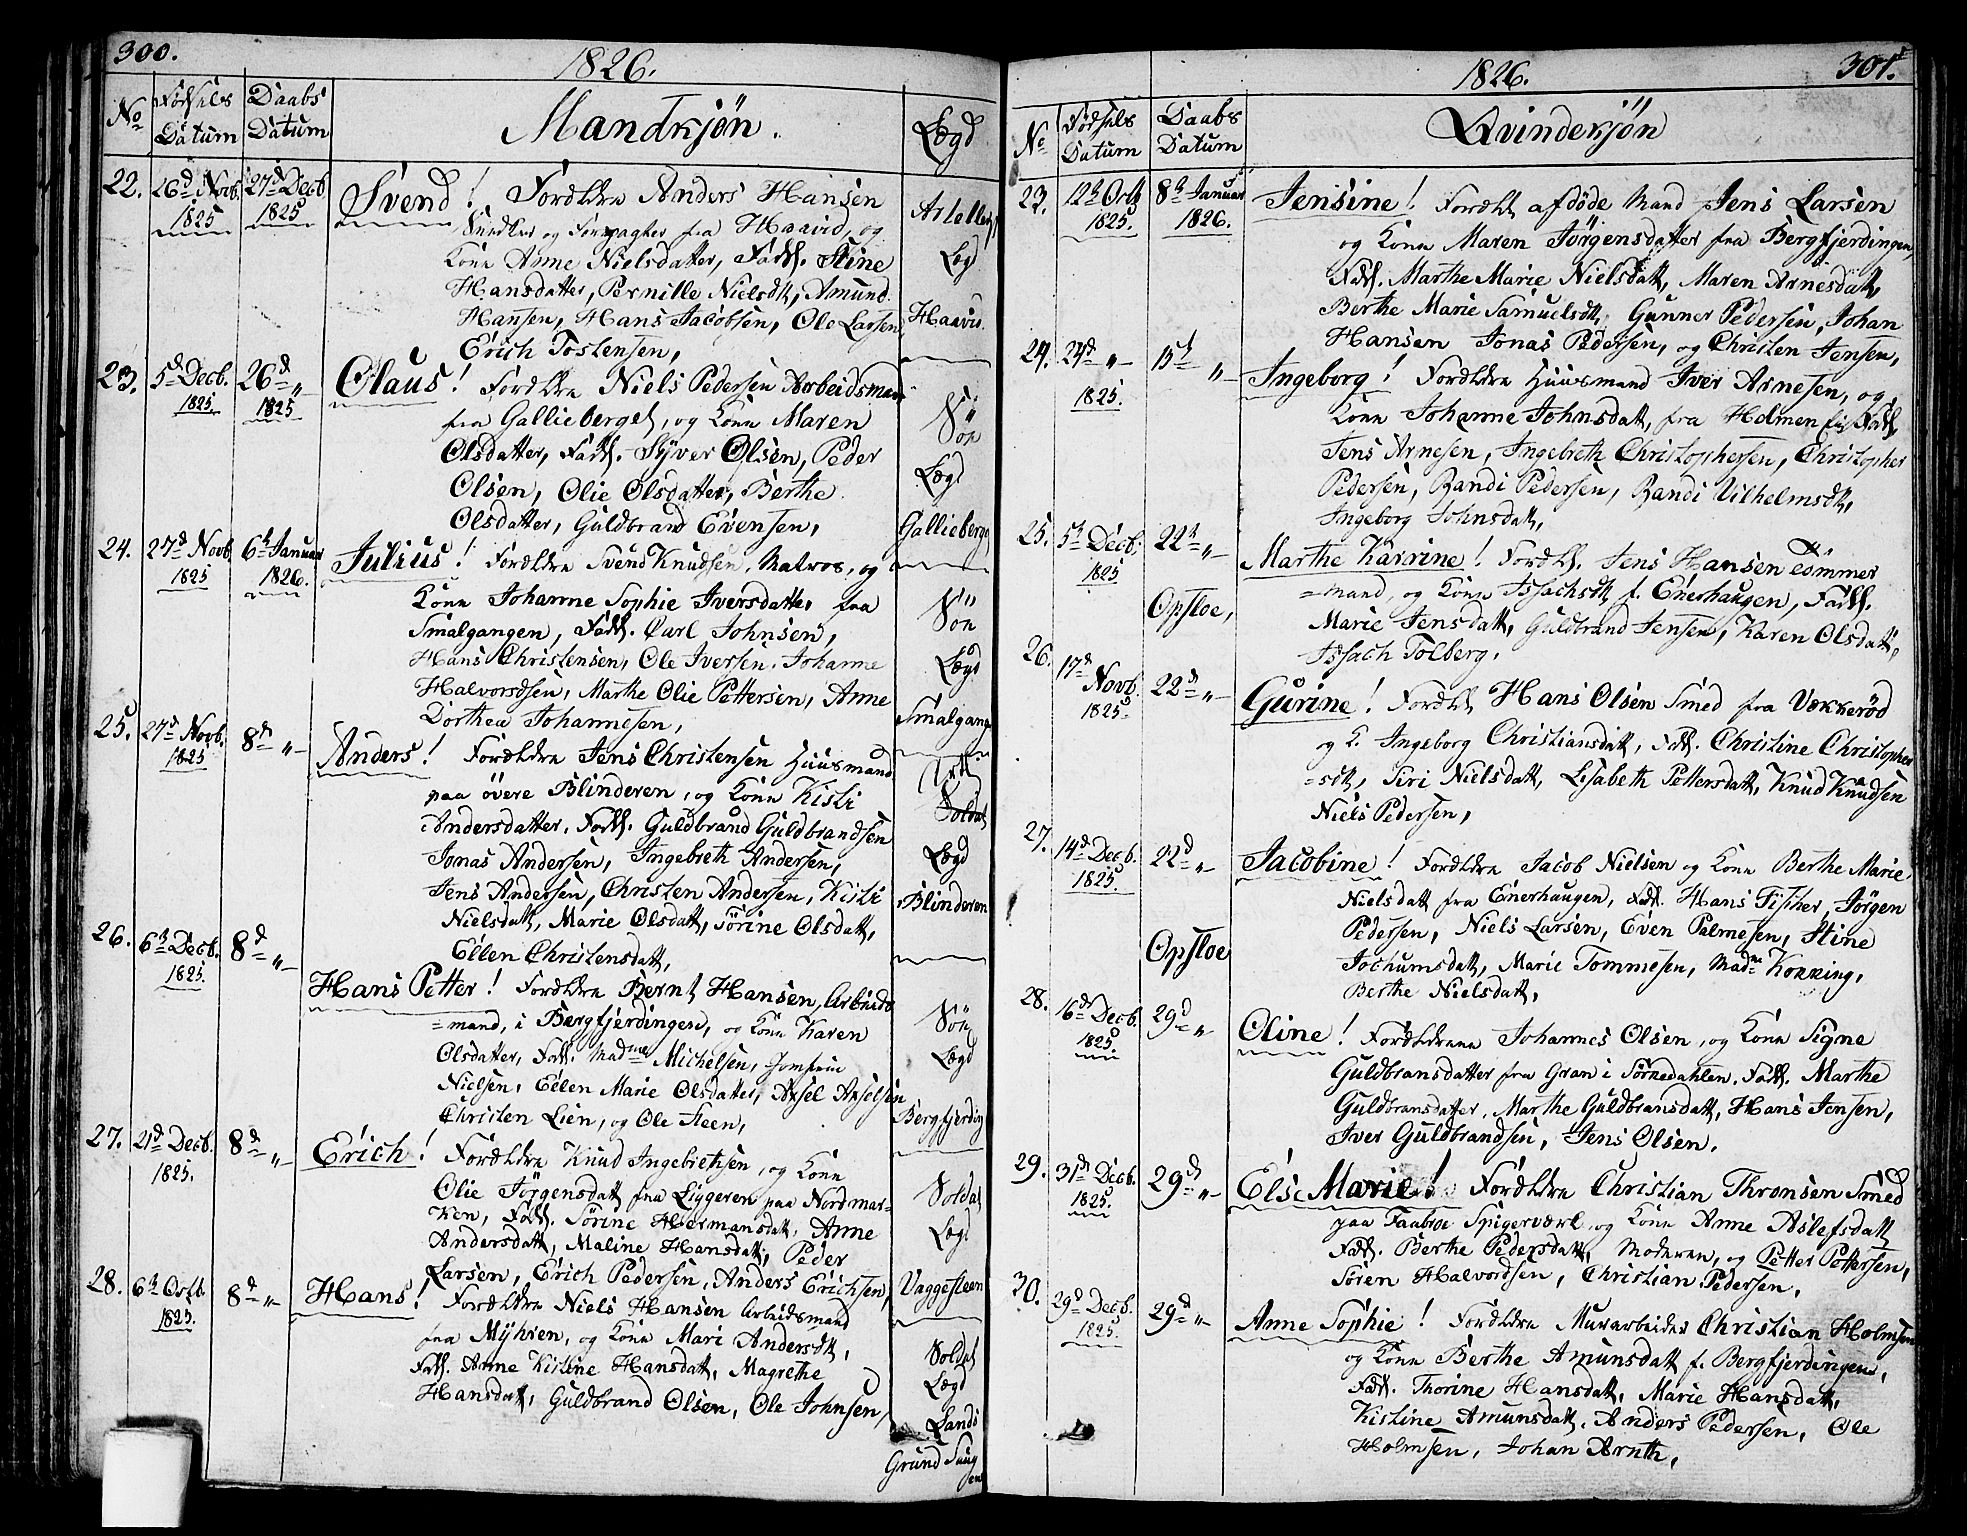 300.
1826.
No
Fødsels Datum
Daabs Datum
Mandkjön.
Lægd
22.
26d Novb. 1825
27d Decb. 1825
Svend! Forældre Anders Hansen
og Forpagter fra Haavid, og
Kone Anne Nielsdatter, Fadd. Stine
Hansdatter, Pernille Nielsdtt, Amund
Hansen, Hans Jacobsen, Ole Larsen
Erich Tostensen,
Lægd
Haavid.
23.
5d Decb. 1825
26d „ 1825
Olaus! Forældre Niels Pedersen Arbeidsmand
fra Gallieberget, og Kone Maren
Olsdatter, Fadd. Syver Olsen, Peder
Olsen, Olie Olsdatter, Berthe
Olsdatter, Guldbrand Evensen,
Söe
Lægd
Gallieberget
24.
27d Novb. 1825
6t Januar 1826.
Julius! Forældre Svend Knudsen, Matros, og
Kone Johanne Sophie Iversdatter fra
Smalgangen, Fadd. Carl Johnsen,
Hans Christensen, Ole Iversen, Johanne
Halvordsen, Marthe Olie Pettersen, Anne
Dorthea Johannesen,
Söe
Lægd
Smalgangen
25.
27d Novb. 1825
8d „
Anders! Forældre Jens Christensen Huusmand
paa övere Blinderen, og Kone Kisti
Andersdatter. Fadd. Guldbrand Guldbrandsen
Jonas Andersen, Ingebreth Andersen,
Jens Andersen, Christen Andersen, Kisti
Nielsdatt, Marie Olsdatt, Sörine Olsdatt,
Ellen Christensdatt,
Soldat
Lægd
Blinderen
26.
6t Decb. 1825.
8d „
Hans Petter! Forældre Bernt Hansen, Arbeids
=mand, i Bergfjerdingen, og Kone Karen
Olsdatter, Fadd. Madme Michelsen, Jomfrue
Nielsen, Ellen Marie Olsdatter, Axsel Axselsen
Christen Lien, og Ole Steen,
Söe
Lægd
Bergfjerding
27.
21d Decb. 1825.
8d „
Erich! Forældre Knud Ingebrethsen, og Kone
Olie Jörgensdatt fra Liggeren paa Nordmar-
ken, Fadd. Sörine Hermansdatt, Anne
Andersdatt, Maline Hansdatt, Peder
Larsen, Erich Pedersen, Anders Erichsen,
Soldat
Lægd
Vaggesteen
28.
6t Octb. 1825.
8d „
Hans! Forældre Niels Hansen Arbeidsmand
fra Myhren, og Kone Mari Andersdt,
Fadd. Anne Kistine Hansdatt, Magrethe
Hansdatt, Guldbrand Olsen, Ole Johnsen,
Soldat
Lægd
Lands
Grund
301.
1826.
No
Fødsels Datum
Daabs Datum
Qvindekjön
23.
12t Octb 1825.
8t Januar 1826.
Jensine! Forældr afdöde Mand Jens Larsen
og Kone Maren Jörgensdatter fra Bergfjerdingen,
Fadd. Marthe Marie Nielsdatt, Maren Arnesdatt,
Berthe Marie Samuelsdt, Gunner Pedersen, Johan
Hansen Jonas Pedersen, og Christen Jensen,
24.
24d „ 1825.
15d „
Ingeborg! Forældre Huusmand Iver Arnesen, og
Kone Johanne Johnsdatt, fra Holmen Fadd
Jens Arnesen, Ingebreth Christophersen, Christopher
Pedersen, Randi Pedersen, Randi Vilhelmsdt,
Ingeborg Johnsdatt,
25.
5t Decb. 1825
22d „
Opsloe,
Marthe Karrine! Forældr. Jens Hansen Tömmer
=mand, og Kone Issachsdt f. Enerhaugen, Fadd.
Marie Jensdatt, Guldbrand Jensen, Karen Olsdatt,
Issach Tolberg,
26.
17d Novb. 1825.
22d „
Gurine! Forældr Hans Olsen Smed fra Vækkeröd
og K. Ingeborg Christiansdatt, Fadd. Christine Christopher
=sdt, Siri Nielsdatt, Lisabeth Pettersdatt, Knud Knudsen
Niels Pedersen,
27.
14d Decb. 1825.
22d „
Opsloe
Jacobine! Forældre Jacob Nielsen og Kone Berthe Marie
Nielsdatt fra Enerhaugen, Fadd. Hans Fischer, Jörgen
Pedersen, Niels Larsen, Even Palmesen, Stine
Jochumsdatt, Marie Tommesen, Madme Konning,
Berthe Nielsdatt,
28.
16de Decb. 1825.
29d „
Oline! Forældrene Johannes Olsen, og Kone Signe
Guldbransdatter fra Gran i Sörnedahlen. Fadd. Marthe
Guldbransdatter, Marthe Guldbransdatt, Hans Jensen,
Iver Guldbrandsen, Jens Olsen.
29.
31d Decb. 1825.
29d „
Else Marie! Forældre Christian Thronsen Smed
paa Taabroe Spigerværk, og Kone Anne Aslefsdatt
Fadd. Berthe Pedersdatt, Moderen, og Petter Pettersen,
Sören Halvordsen, Christian Pedersen,
30.
29d Decb. 1825.
29d „
Anne Sophie! Forældre Murarbeider Christian Holmsen
og Kone Berthe Amunsdatt f. Bergfjerdingen,
Fadd. Thorine Hansdatt, Marie Hansdatt,
Kistine Amunsdatt, Anders Pedersen, Ole
Holmsen, Johan Arnth,